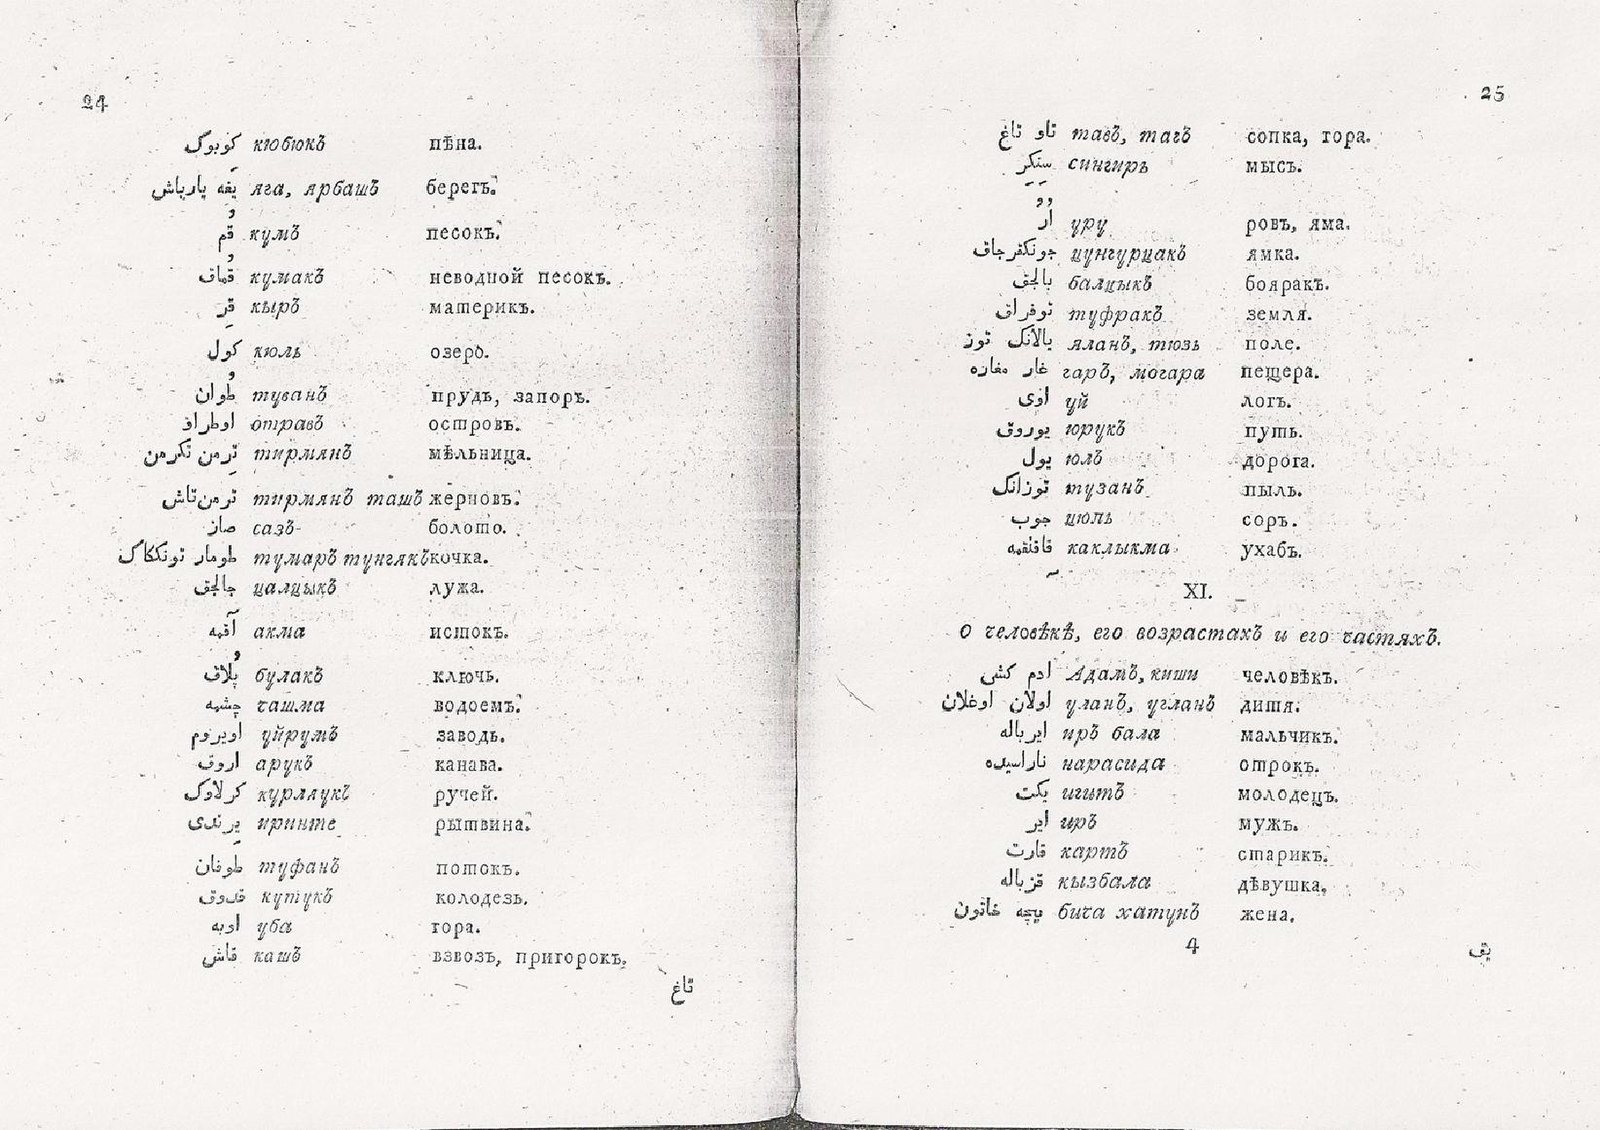 24
كوبوك кюбюкъ пѣна.
يقه يارباش яга, ярбашъ берегъ.
قُم кумъ песокъ.
قُماق кумакъ неводной песокъ.
قِر кыръ материкъ.
كول кюль озеро.
طُوان туванъ прудъ, запоръ.
اوطراف отравъ островъ.
ترمن تكرمن тирмянъ мѣльница.
ترمن تاش тирмянъ ташъ жерновъ.
صاز сазъ болото.
طومار тумаръ тунгякъ кочка.
چالچق цалцыкъ лужа.
آقمه акма истокъ.
بُلاق булакъ ключь.
چشمه чашма водоемъ.
اويروم уйрумъ заводь.
اروق арукъ канава.
كرلاوك курляукъ ручей.
يرندى иринте рытвина.
طوفان туфанъ потокъ.
قدوق кутукъ колодезь.
اوبه уба гора.
قاش кашъ взвозъ, пригорокъ.
تاغ
25
تاو تاغ тавъ, тагъ сопка, гора.
سِنكِر сингиръ мысъ.
اُرُ уру ровъ, яма.
чونكقرجاق цунгурцакъ ямка.
بالچق балцыкъ бояракъ.
توفراق туфракъ земля.
يالانك توز яланъ, тюзь поле.
غار مغاره гаръ, могара пещера.
اوى уй логъ.
يوروق юрукъ путь.
يول юлъ дорога.
توزانك тузанъ пыль.
چوب цюпь соръ.
قاقلقمه каклыкма ухабъ.
XI.
О человѣкѣ, его возрастахъ и его частяхъ.
ادم كشى Адамъ, киши человѣкъ.
اولان اوغلان уланъ, угланъ дитя.
ايرباله иръ бала мальчикъ.
نارسيده нарасида отрокъ.
يكت игитъ молодецъ.
اير иръ мужъ.
قارت картъ старикъ.
قزباله кызбала дѣвушка.
بيچه خاتون бича хатунъ жена.
4
يق